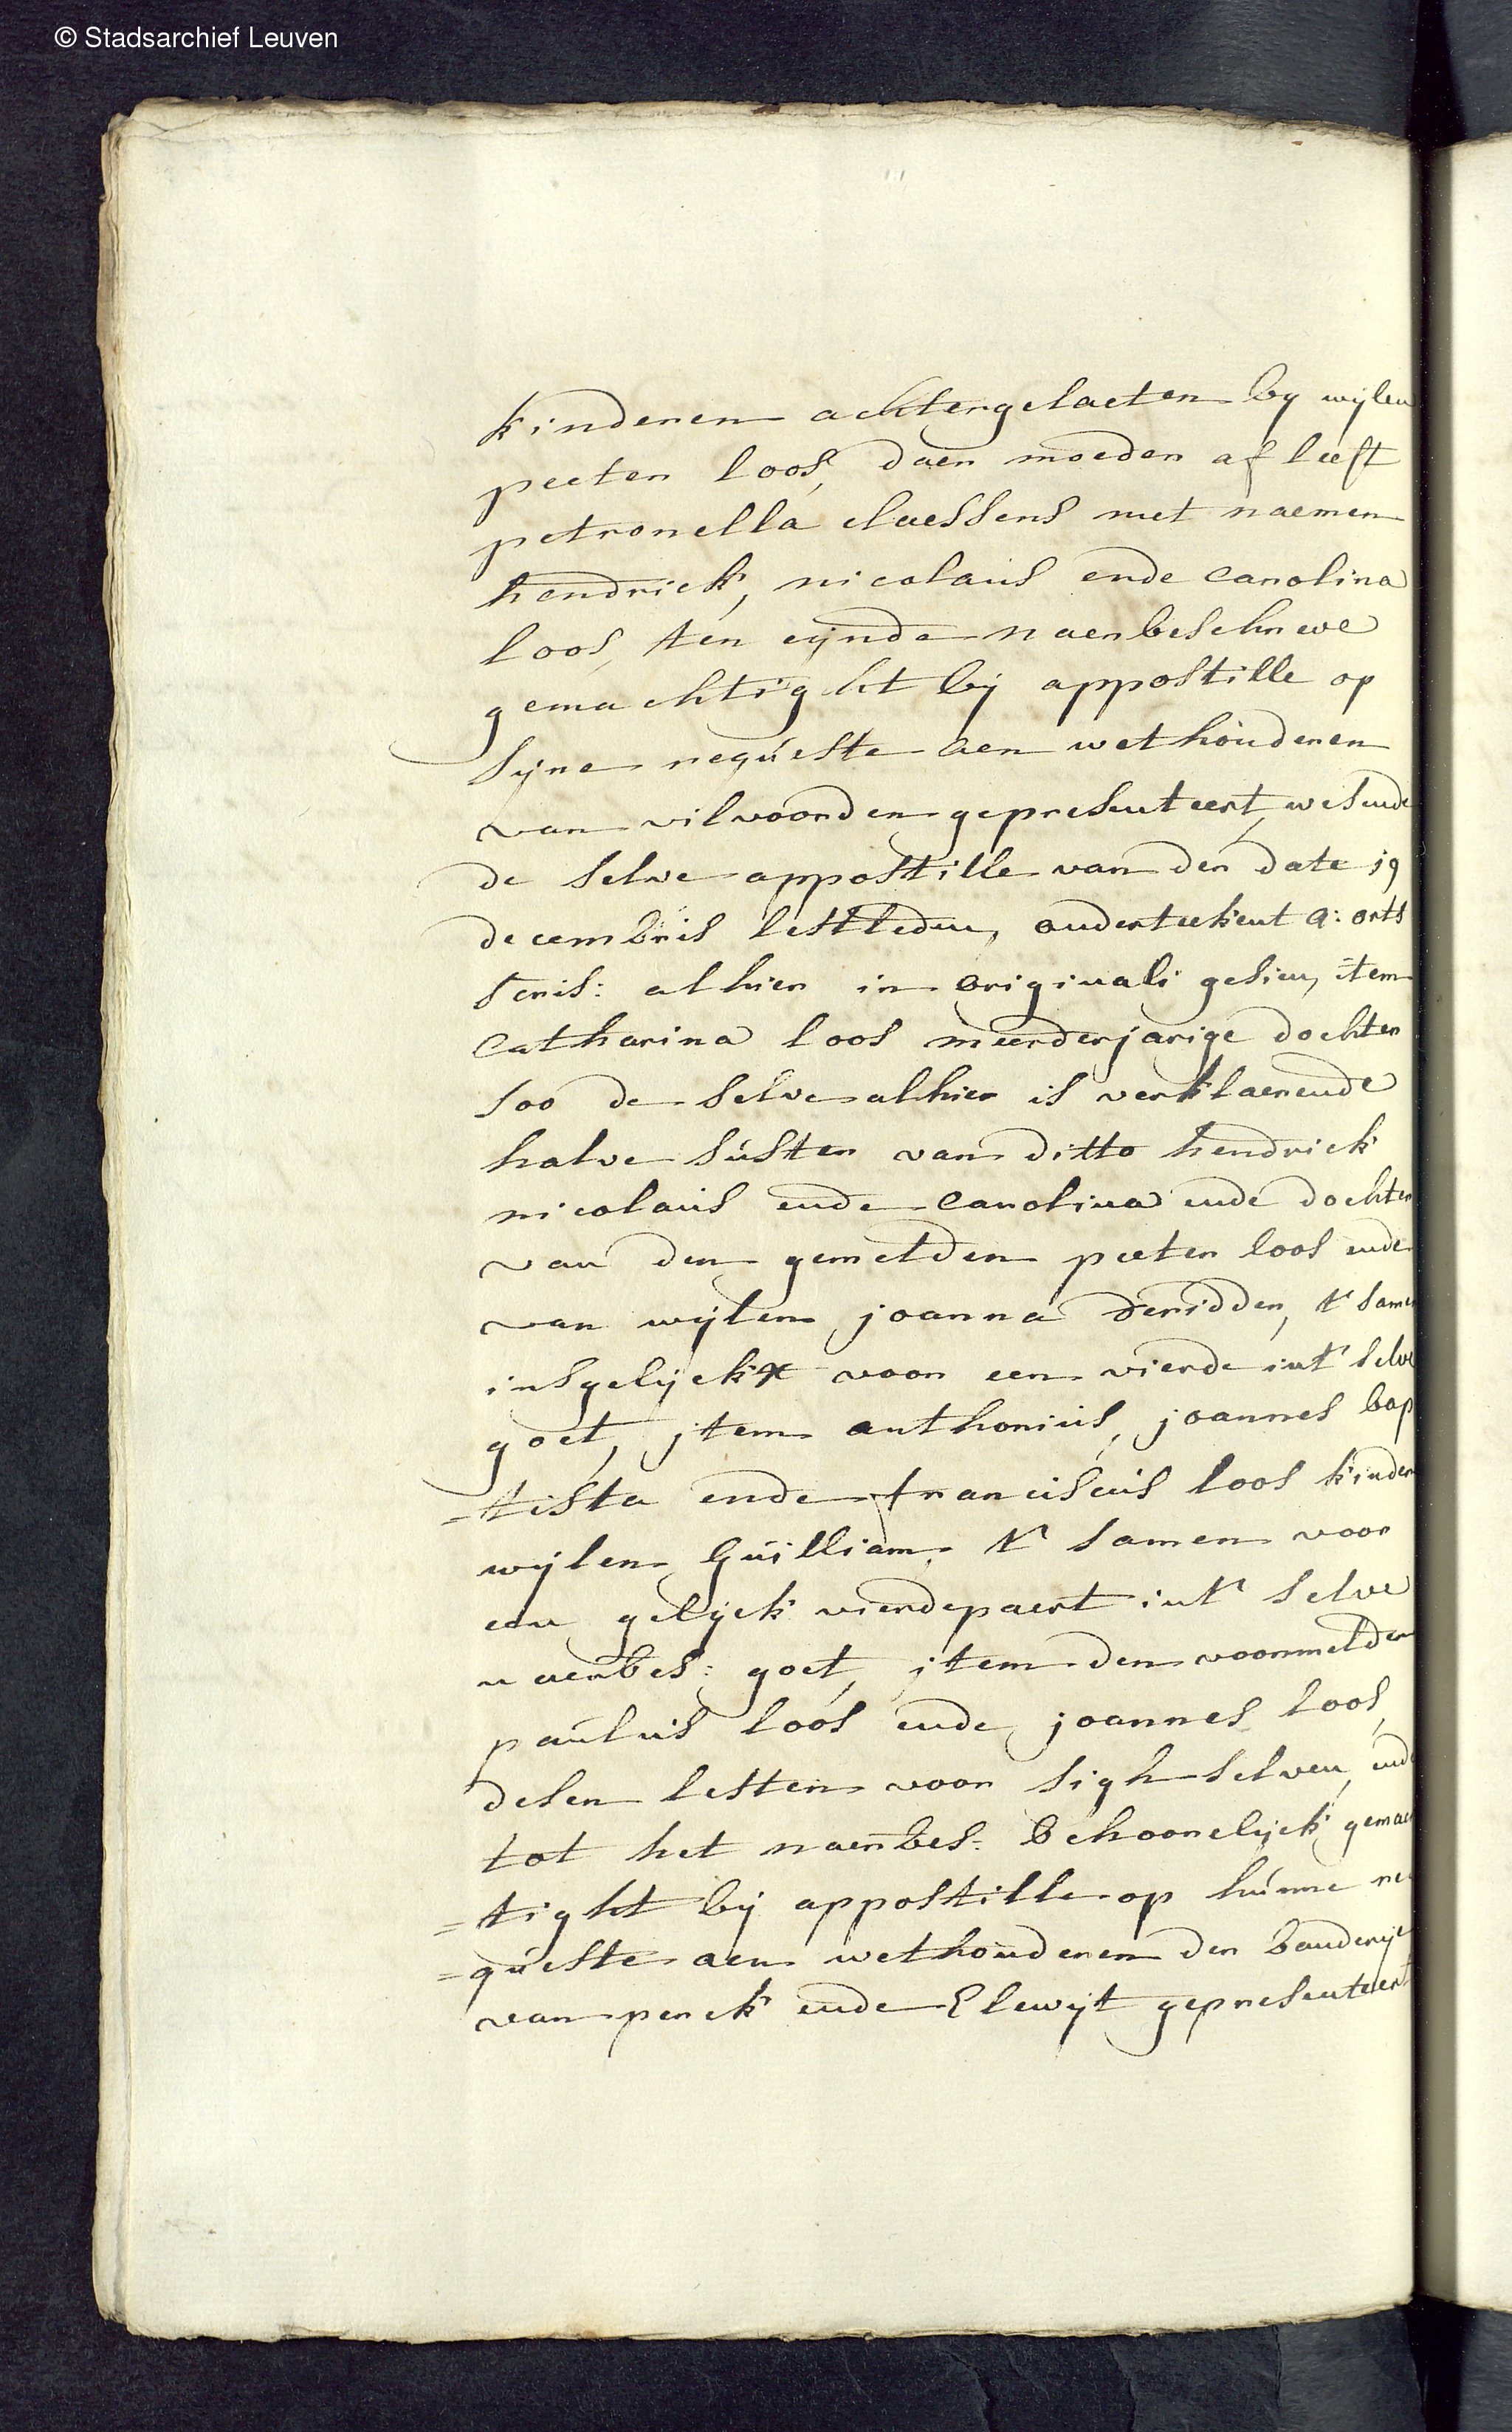 © Stadsarchief Leuven
kinderen achtergelaeten by wijlen
peeter loos, daer moeder af leeft
petronella claessens met naemen
hendrick, nicolaus ende carolina
loos, ten eynde naerbeschreve
gemachtight bij appostille op
syne requeste aen wethouderen
van vilvoorden gepresenteert, wesende
de selve appostille van den date 19
decembris lestleden, onderteekent a: orts
scris: alhier in originali gesien, item
catharina loos meerderjarige dochter
soo de selve alhier is verklaerende
halve suster van ditto hendrick
nicolaus ende carolina ende dochter
van den gemelden peeter loos ende
van wijlen joanna deridder, t' samen
insgelyckx voor een vierde int' selve
goet, jtem anthonius, joannes bap
=tista ende franciscus loos kinder
wijlen Guilliam t' samen voor
een gelyck vierdepaert int' selve
naerbes: goet, jtem den voormelden
paulus loos ende joannes loos,
desen lesten voor sigh selven, ende
tot het naerbes: behoorelyck gemach
=tight by appostille op hunne re
=queste aen wethouderen der banderije
van perck ende Elewyt gepresenteert